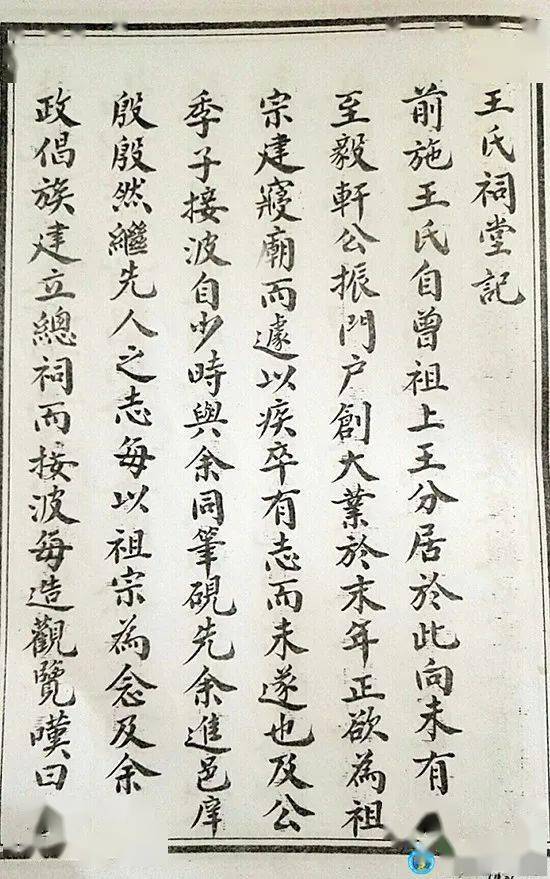 王氏祠堂記
前施王氏自曾祖上王分居於此向未有
至毅軒公振門户創大業於末年正欲為祖
宗建寢廟而遽以疾卒有志而未遂也及公
季子接波自少時與余同筆硯先余進邑庠
殷殷然繼先人之志每以祖宗為念及余
政倡族建立總祠而接波每造觀覽嘆曰